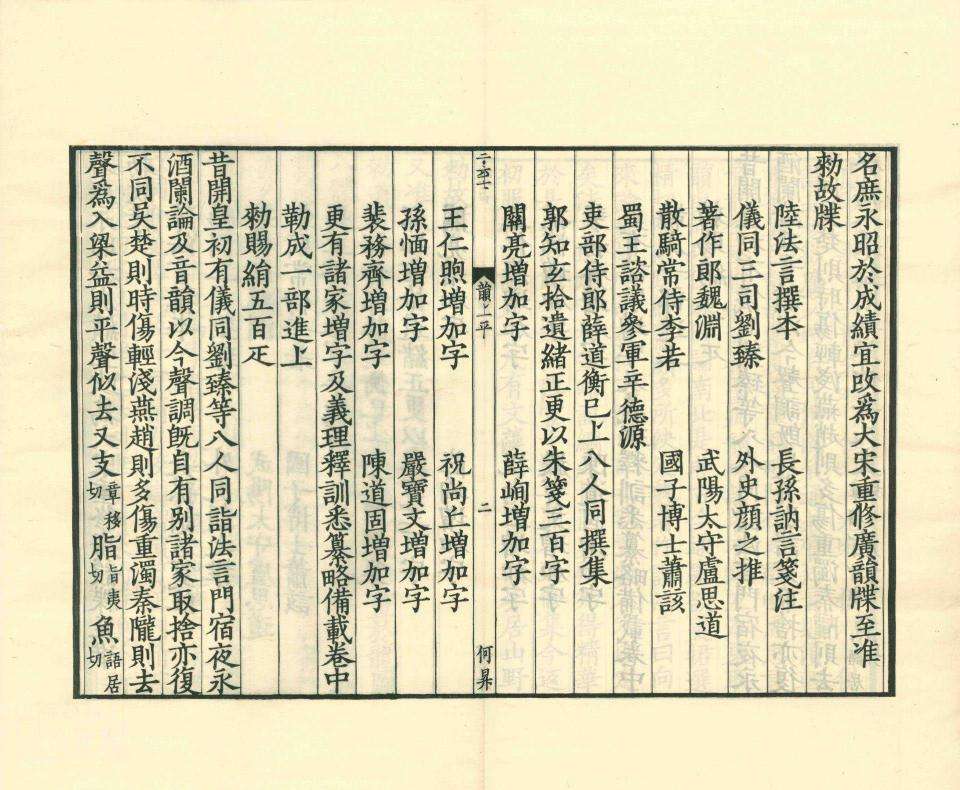 名庶永昭於成績宜改爲大宋重修廣韻牒至准
勑故牒
陸法言撰本　長孫訥言箋注
儀同三司劉臻　外史顔之推
著作郎魏淵　武陽太守盧思道
散騎常侍李若　國子博士蕭該
蜀王諮議參軍辛德源
吏部侍郎薛道衡已上八人同撰集
郭知玄拾遺緒正更以朱箋三百字
關亮增加字　薛峋增加字
韻上平　二　何昇
王仁煦增加字　祝尚丘增加字
孫愐增加字　嚴寶文增加字
裴務齊增加字　陳道固增加字
更有諸家增字及義理釋訓悉纂略備載卷中
勒成一部進上
勑賜絹五百疋
昔開皇初有儀同劉臻等八人同詣法言門宿夜永
酒闌論及音韻以今聲調旣自有別諸家取捨亦復
不同吳楚則時傷輕淺燕趙則多傷重濁秦隴則去
聲爲入梁益則平聲似去又支章移切脂旨夷切魚語居切